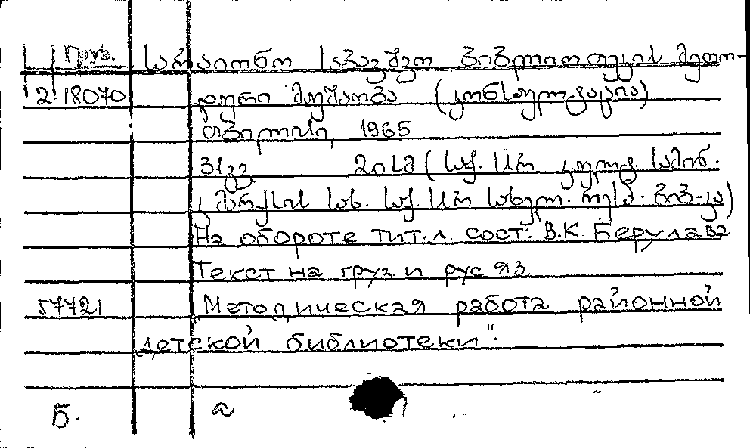 Груз. სარაიონო საბავშვო ბიბლიოთეკის მეთო-
2 18070 დური მუშაობა (კონსულტაცია)
თბილისი, 1965
31 გვ 20სმ (საქ. სსრ კულტ. სამინ.
კ. მარქსის სახ. საქ. სსრ სახელმ. რესპ. ბიბ-კა)
На обороте тит. л. сост: В.К. Берулава
Текст на груз и рус яз
57721 Методическая работа районной
детской библиотеки".
Б.